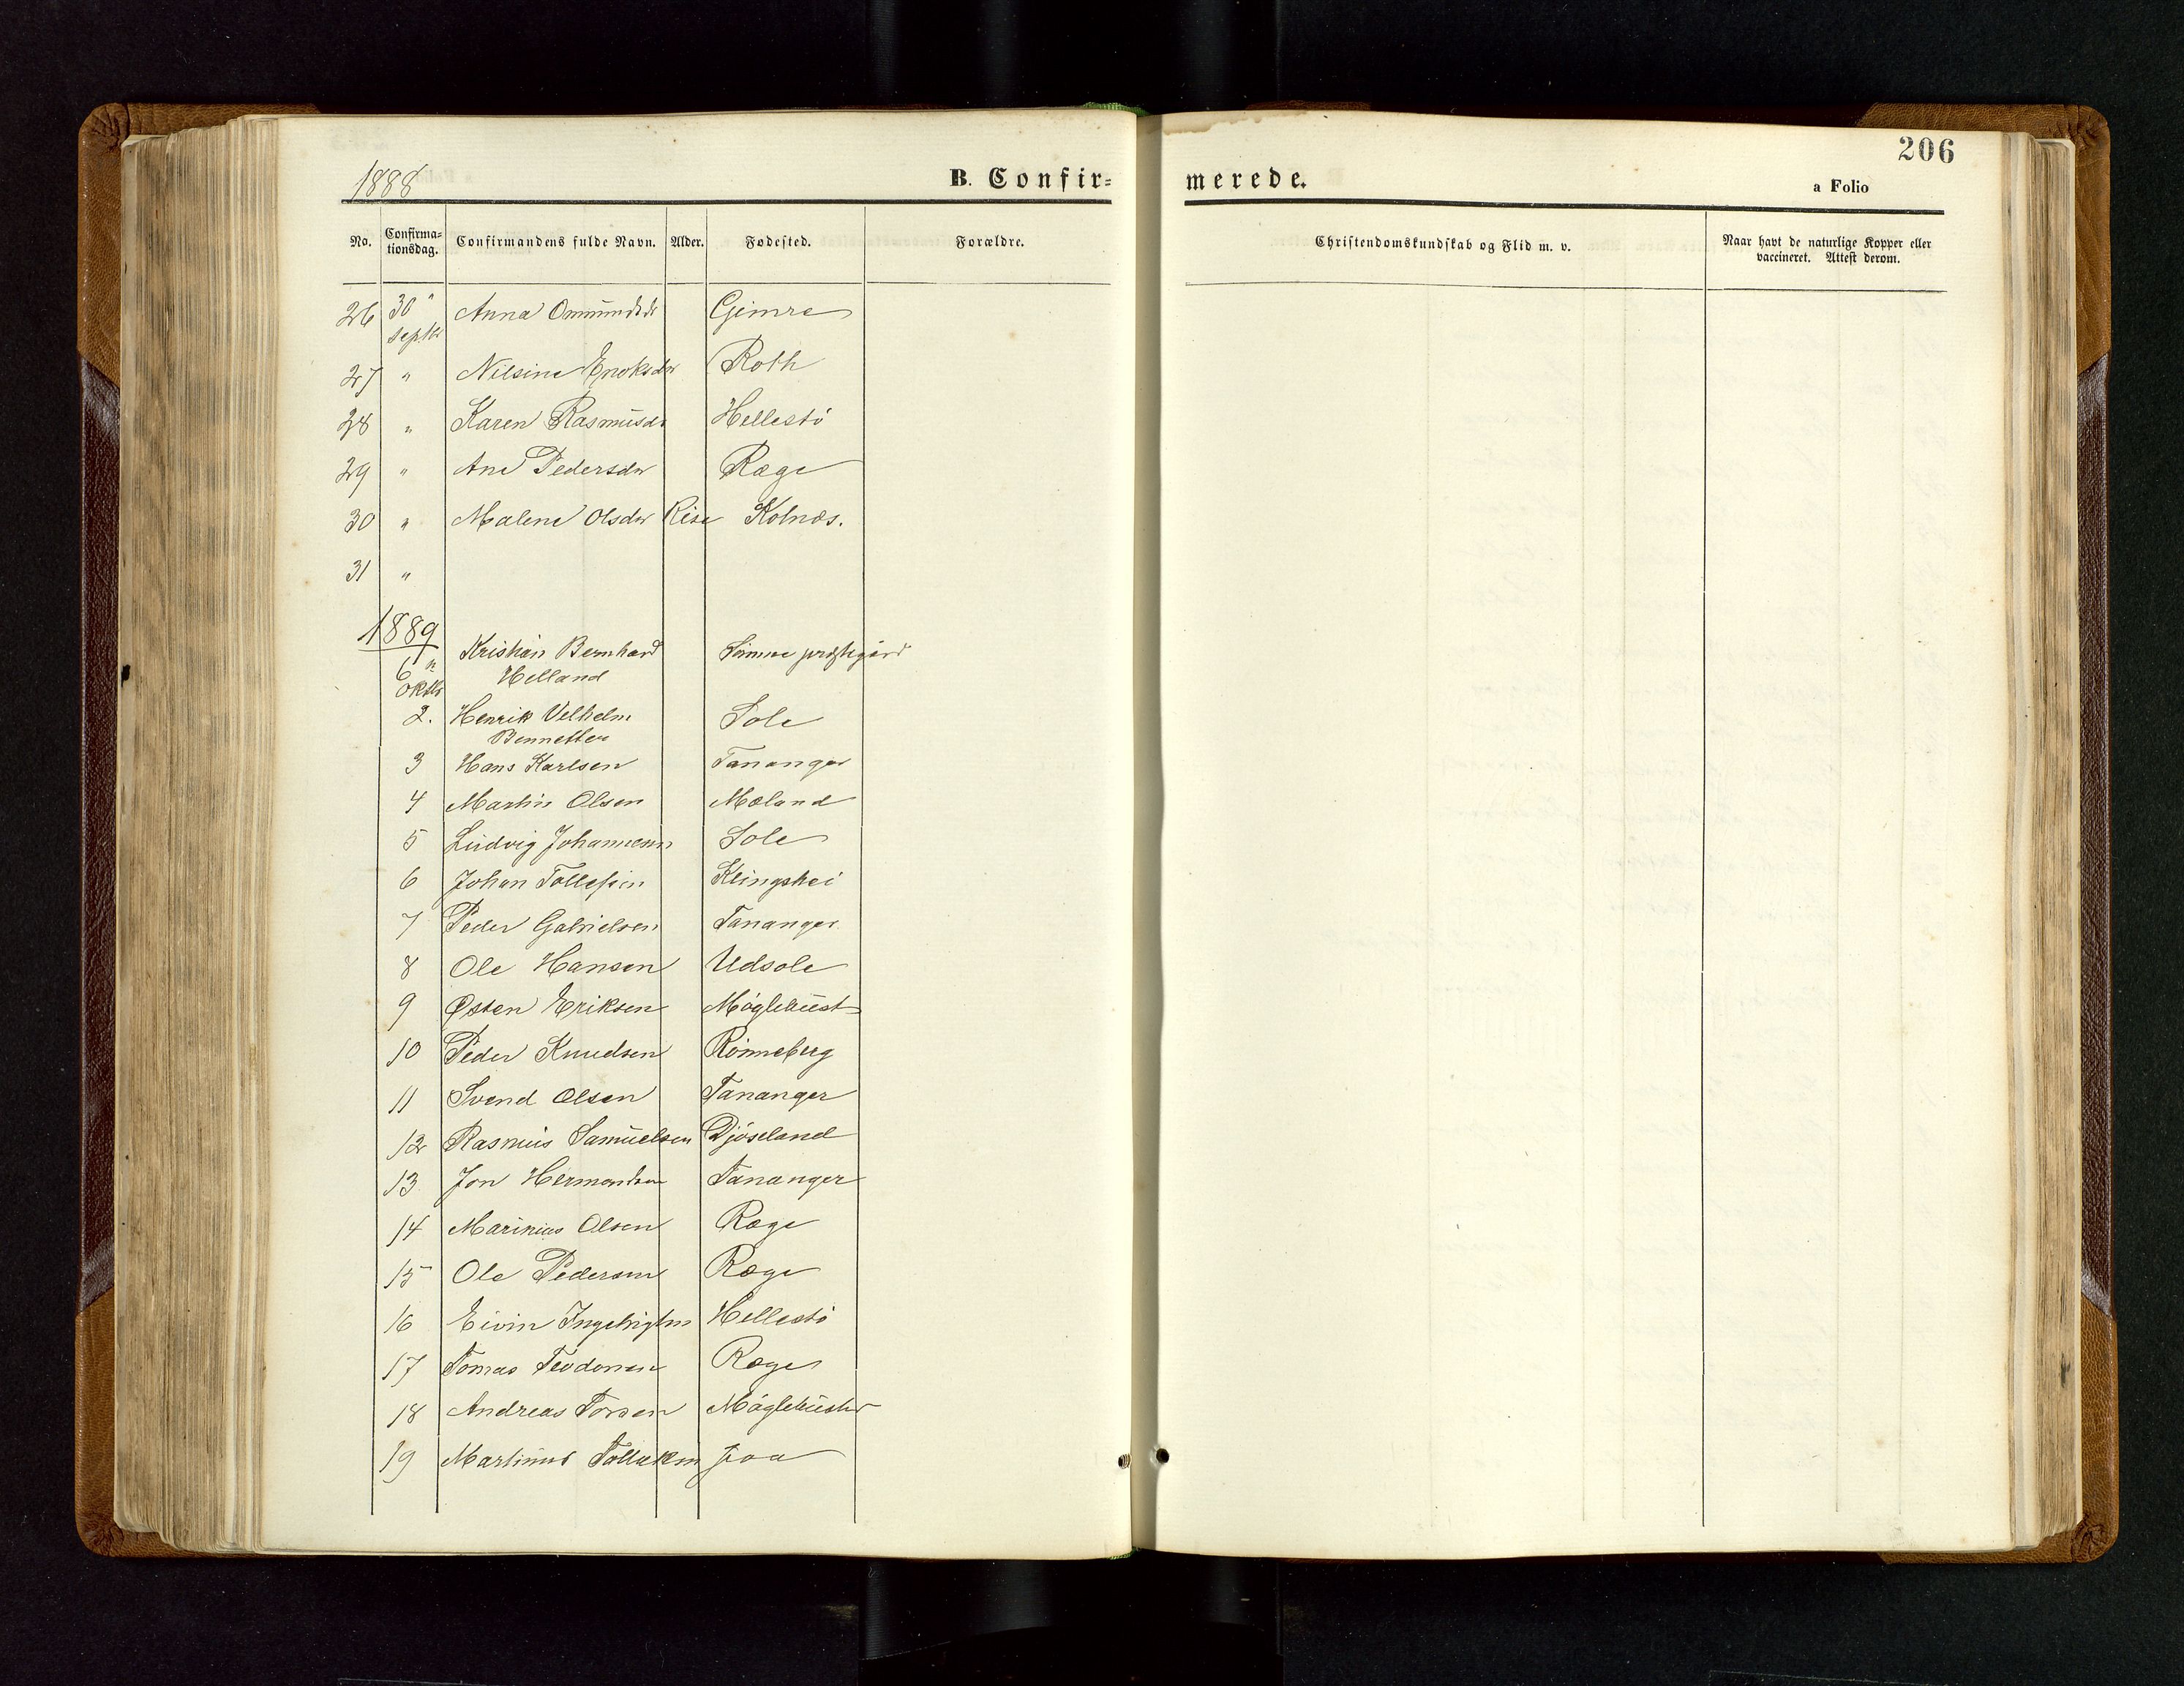 206
1888
B. Confir=
merede.
a Folio
No. Confirma=tionsdag. Confirmandens fulde Navn. Alder. Fødested. Forældre. Christendomskundskab og Flid m. v. Naar havt de naturlige Kopper eller vaccineret. Attest derom.
26 30" Septb Anna Ommundsdr Gimre
27 " Nilsine Enoksdr Roth
28 " Karen Rasmusdr Hellestö
29 " Ane Pedersdr Ræge
30 " Malene Olsdr Rise Kolnæs.
31 "
1889
6" Kristian Bernhard Sömme præstegård
oktb Helland
2. Henrik Velhelm Sole
Bennetter
3 Hans Karlsen Tananger
4 Martin Olsen Mæland
5 Ludvig Johannesen Sole
6 Johan Tollefsen Klingshei
7 Peder Gabrielsen Tananger
8 Ole Hansen Udsole
9 Østen Eriksen Möglebust
10 Peder Knudsen Rönneberg
11 Svend Olsen Tananger
12 Rasmus Samuelsen Djöseland
13 Jon Hermansen Tananger
14 Marinius Olsen Ræge
15 Ole Pedersen Ræge
16 Eivin Ingebrigtsn Hellestö
17 Tomas Teodorsen Ræge
18 Andreas Torsen Möglebust
19 Martinus